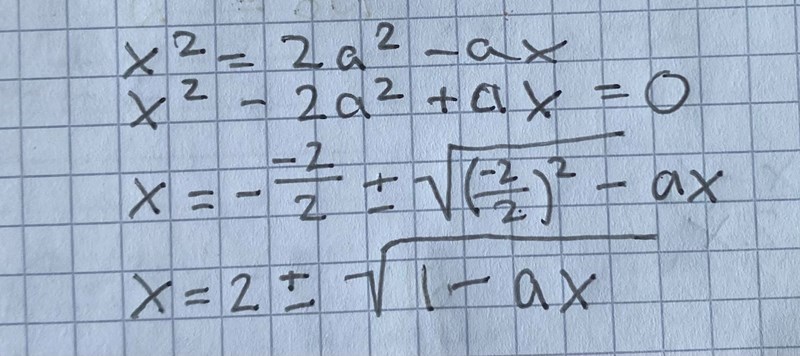 x² = 2a² - ax
x² - 2a² + ax = 0
x = - -2/2 ± √((-2/2)² - ax
x = 2 ± √(1 - ax